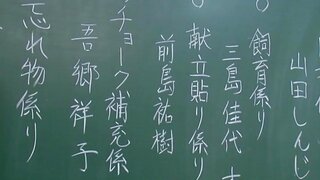 山田しんじ
○飼育係り
三島佳代
○献立貼り係り
前島祐樹
チョーク補充係
吾郷祥子
忘れ物係り